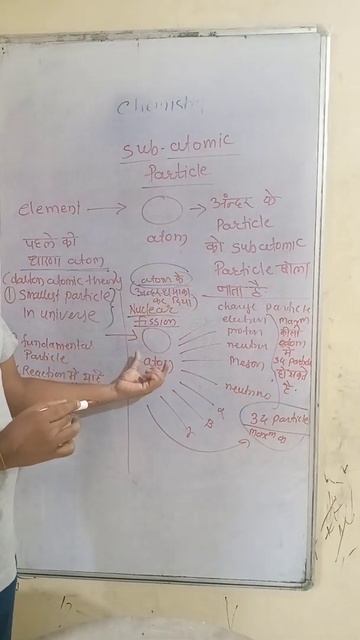 Chemistry
Sub-atomic
Particle
element → → अंन्दर के
atom
Particle
को subatomic
Particle बोला
जाता है
पहले की
धारणा atom
(dalton atomic theory)
① Smallest particle
in universe
fundamental
Particle
Reaction में
atom के
कर दिया
Nuclear
fission
atom
charge particle
electron
proton
neutron
Meson
neutrino
maxm
किसी
atom
में
34 particle
हो सकते
है
α
β
γ
34 particle
maxm